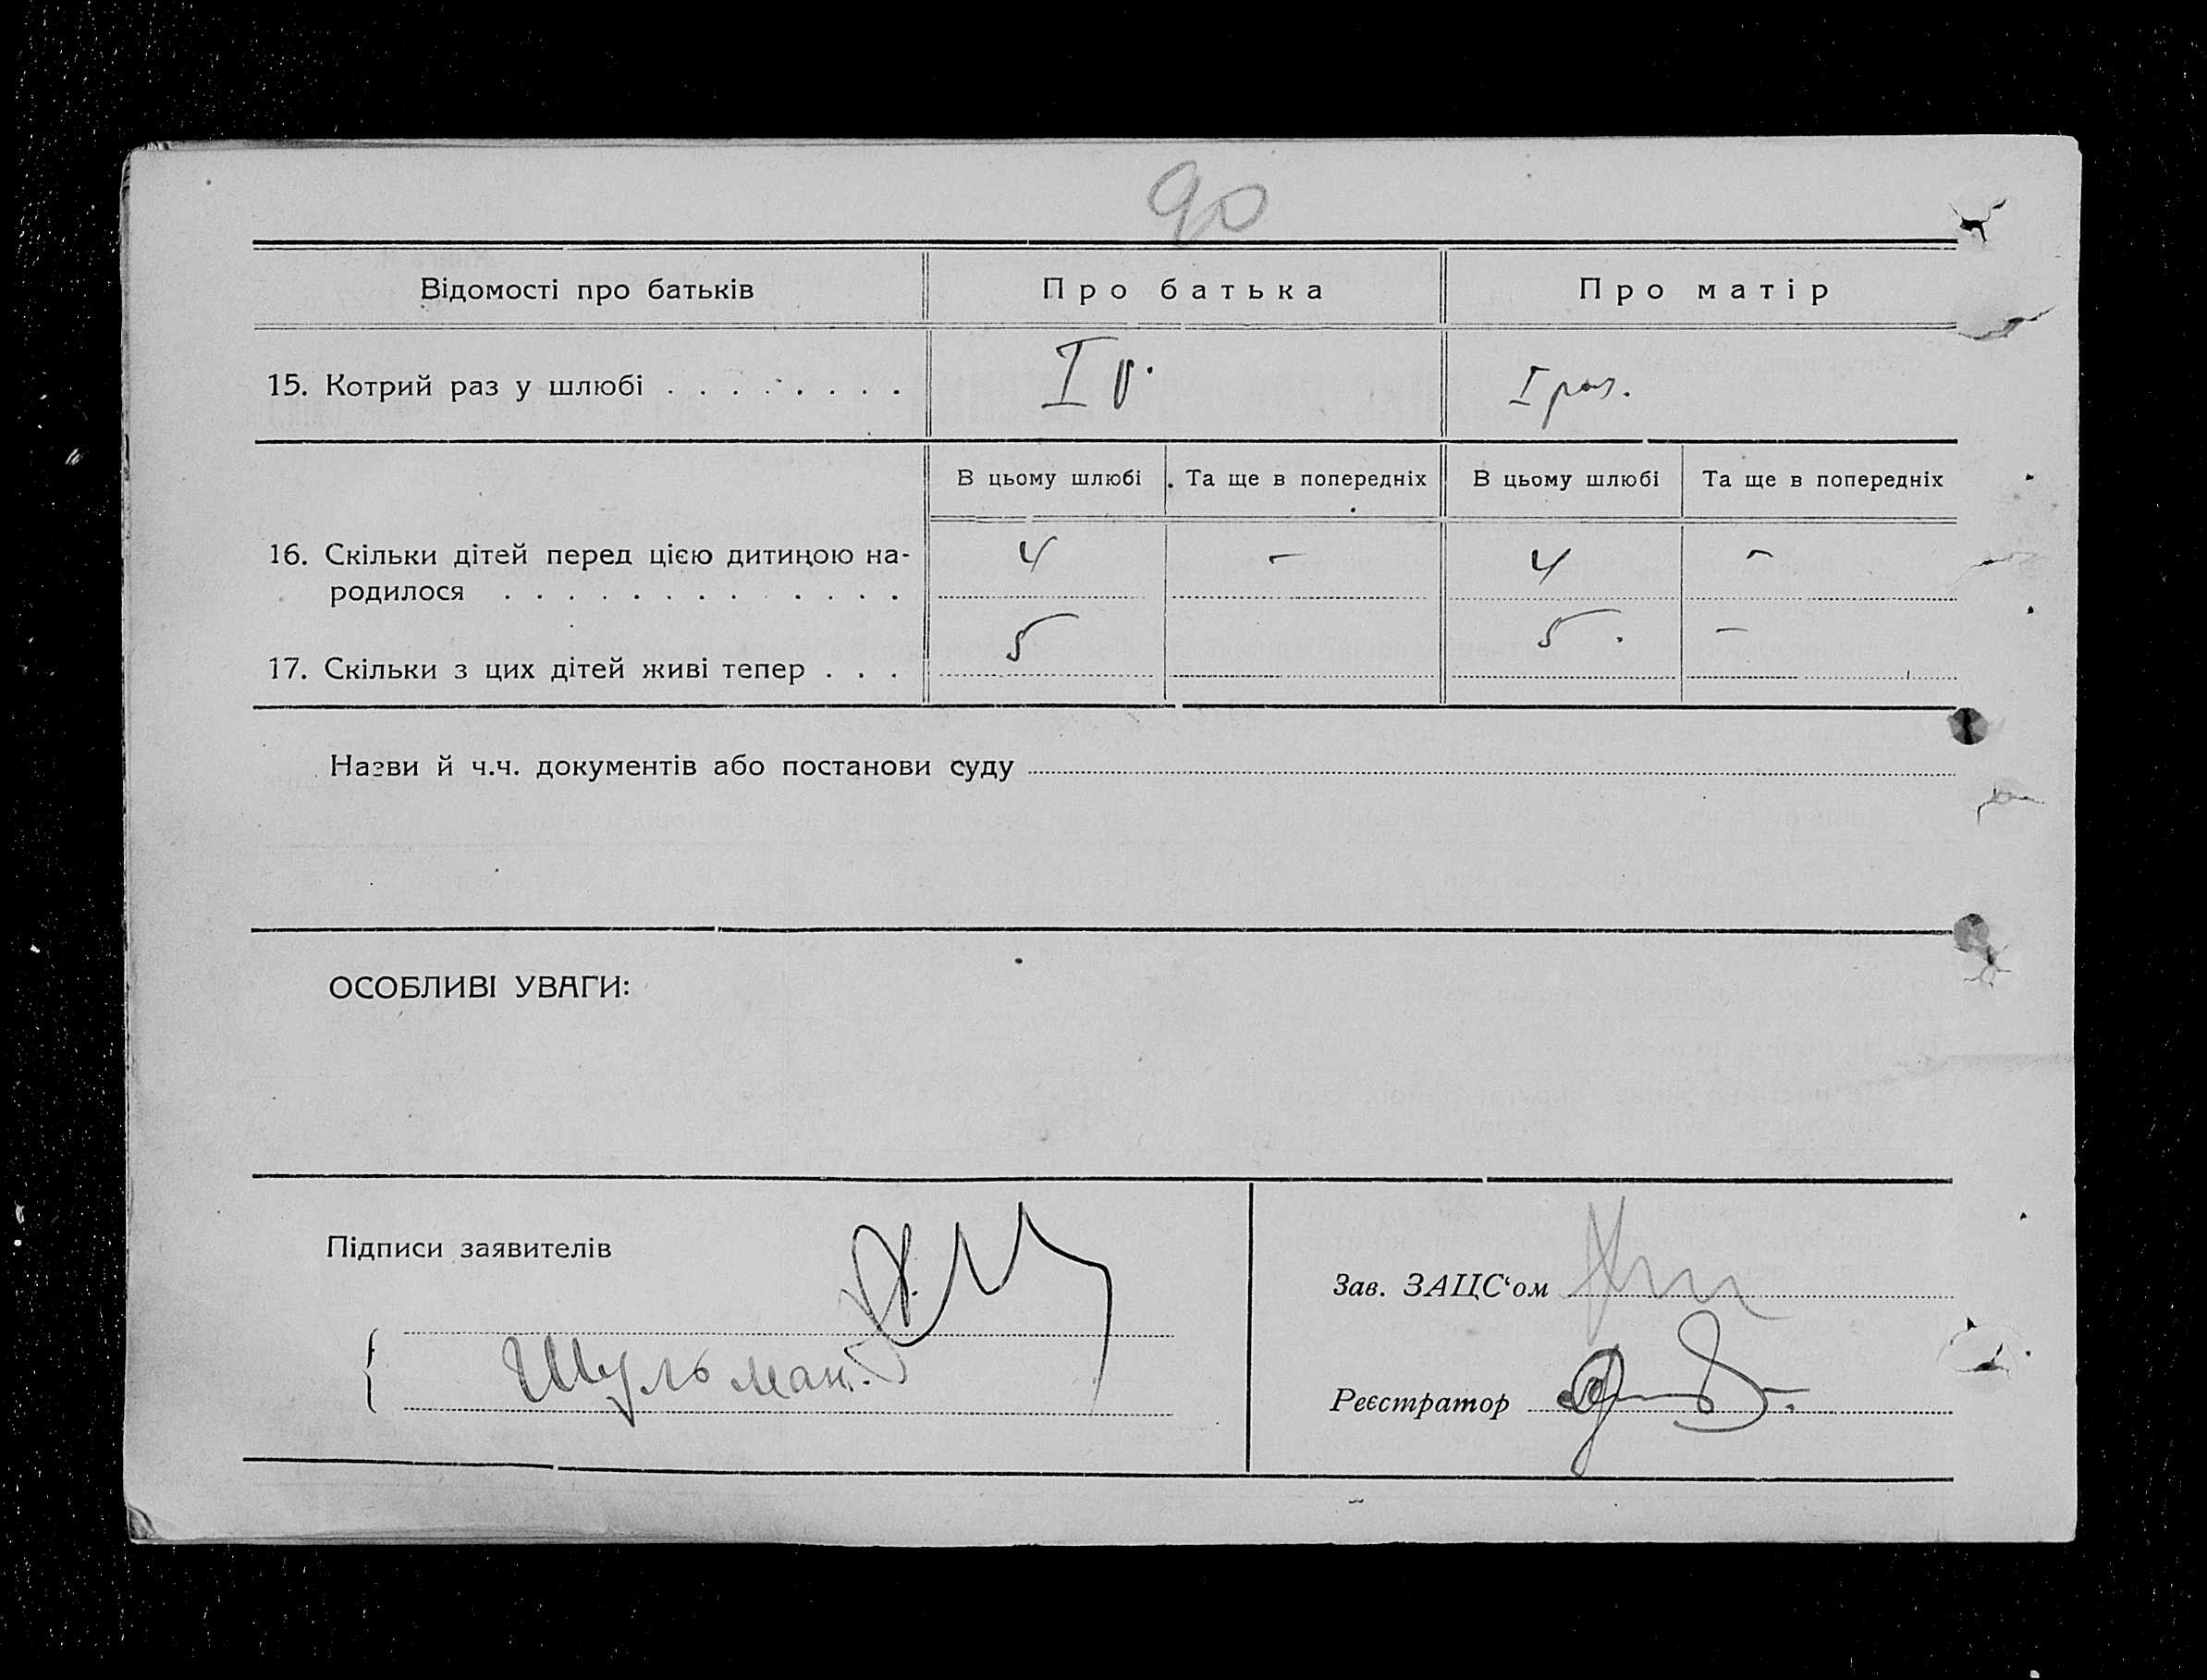 90
Відомості про батьків Про батька Про матір
15. Котрий раз у шлюбі . . . . . . . . I р. I раз.
В цьому шлюбі Та ще в попередніх В цьому шлюбі Та ще в попередніх
16. Скільки дітей перед цією дитиною на- 4 – 4 –
родилося . . . . . . . . . . . .
17. Скільки з цих дітей живі тепер . . . 5 5. –
Назви й ч.ч. документів або постанови суду
ОСОБЛИВІ УВАГИ:
Підписи заявителів
Зав. ЗАЦС‘ом
Шульман.
Реєстратор